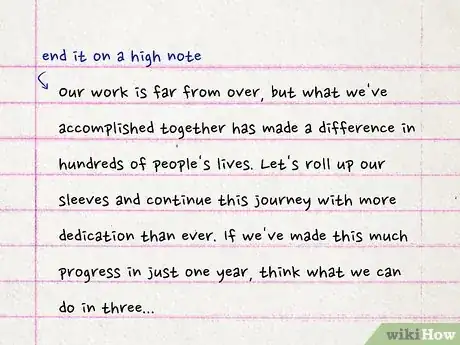 end it on a high note
Our work is far from over, but what we've
accomplished together has made a difference in
hundreds of people's lives. Let's roll up our
sleeves and continue this journey with more
dedication than ever. If we've made this much
progress in just one year, think what we can
do in three...
wikiHow